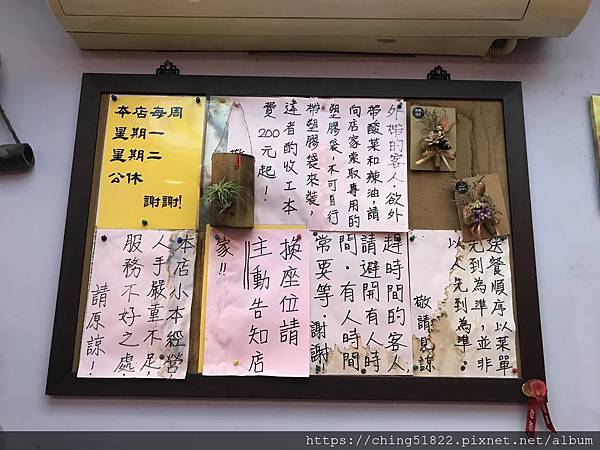 本店每周
星期一
星期二
公休
謝謝!
外帶的客人,欲外
帶酸菜和辣油,請
向店家索取專用的
塑膠袋,不可自行
帶塑膠袋來裝,
違者酌收工本
費200元起!
敬
本店小本經營,
人手嚴重不足,
服務不好之處,
請原諒!
換座位請
主動告知店
家!!
趕時間的客人,
請避開有人時
間,有人時間
常要等,謝謝
送餐順序以菜單
先到為準,並非
以人先到為準
敬請見諒
https://ching51822.pixnet.net/album